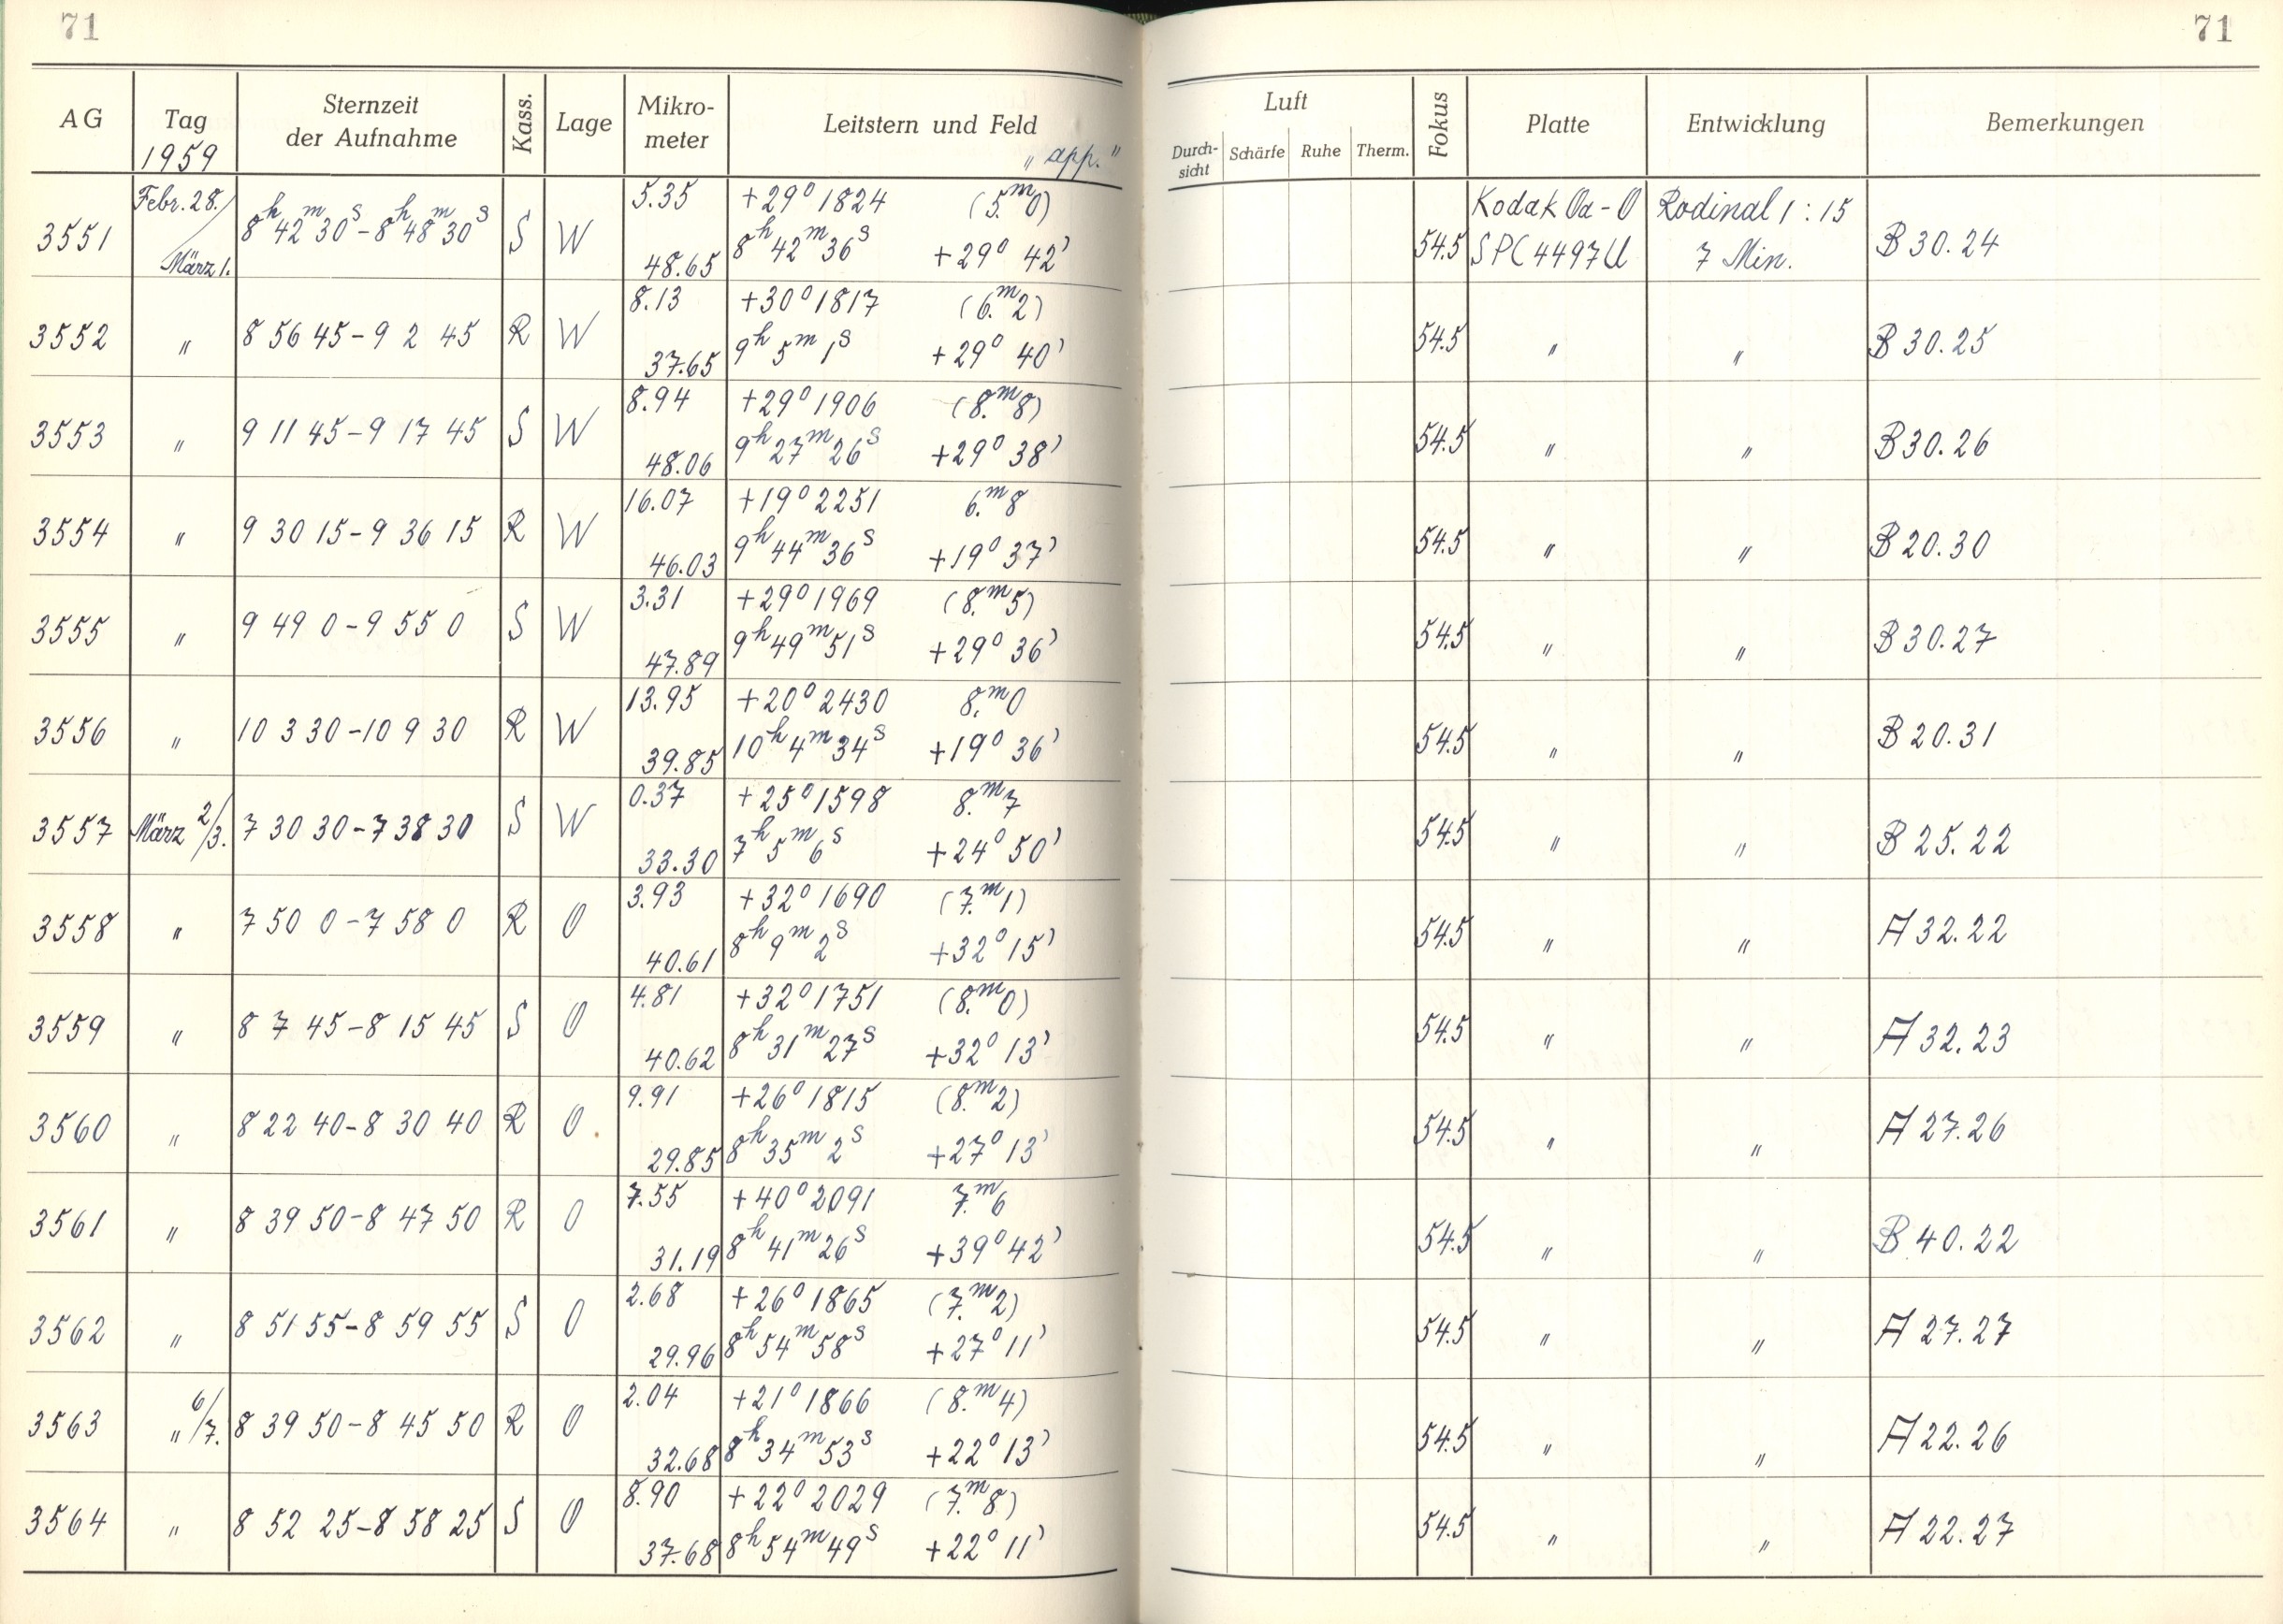 71 71
AG Tag 1959 Sternzeit der Aufnahme Kass. Lage Mikro-meter Leitstern und Feld "app." Luft Durch-sicht Schärfe Ruhe Therm. Fokus Platte Entwicklung Bemerkungen
Febr. 28./ 5.35 +29° 1824 (5.ᵐ0) Kodak Oa-O Rodinal 1:15
3551 8ʰ42ᵐ30ˢ-8ʰ48ᵐ30ˢ S W 54.5 B 30.24
März 1. 48.65 8ʰ 42ᵐ 36ˢ +29° 42' SPC 4497U 7 Min.
8.13 +30° 1817 (6.ᵐ2)
3552 " 8 56 45-9 2 45 R W 54.5 " " B 30.25
37.65 9ʰ 5ᵐ 1ˢ +29° 40'
8.94 +29° 1906 (8.ᵐ8)
3553 " 9 11 45-9 17 45 S W 54.5 " " B 30.26
48.06 9ʰ 27ᵐ 26ˢ +29° 38'
16.07 +19° 2251 6.ᵐ8
3554 " 9 30 15-9 36 15 R W 54.5 " " B 20.30
46.03 9ʰ 44ᵐ 36ˢ +19° 37'
3.31 +29° 1969 (8.ᵐ5)
3555 " 9 49 0-9 55 0 S W 54.5 " " B 30.27
47.89 9ʰ 49ᵐ 51ˢ +29° 36'
13.95 +20° 2430 8.ᵐ0
3556 " 10 3 30-10 9 30 R W 54.5 " " B 20.31
39.85 10ʰ 4ᵐ 34ˢ +19° 36'
0.37 +25° 1598 8.ᵐ7
3557 März 2/3. 7 30 30-7 38 30 S W 54.5 " " B 25.22
33.30 7ʰ 5ᵐ 6ˢ +24° 50'
3.93 +32° 1690 (7.ᵐ1)
3558 " 7 50 0-7 58 0 R O 54.5 " " A 32.22
40.61 8ʰ 9ᵐ 2ˢ +32° 15'
4.81 +32° 1751 (8.ᵐ0)
3559 " 8 7 45-8 15 45 S O 54.5 " " A 32.23
40.62 8ʰ 31ᵐ 27ˢ +32° 13'
9.91 +26° 1815 (8.ᵐ2)
3560 " 8 22 40-8 30 40 R O 54.5 " " A 27.26
29.85 8ʰ 35ᵐ 2ˢ +27° 13'
7.55 +40° 2091 7.ᵐ6
3561 " 8 39 50-8 47 50 R O 54.5 " " B 40.22
31.19 8ʰ 41ᵐ 26ˢ +39° 42'
2.68 +26° 1865 (7.ᵐ2)
3562 " 8 51 55-8 59 55 S O 54.5 " " A 27.27
29.96 8ʰ 54ᵐ 58ˢ +27° 11'
2.04 +21° 1866 (8.ᵐ4)
3563 " 6/7. 8 39 50-8 45 50 R O 54.5 " " A 22.26
32.68 8ʰ 34ᵐ 53ˢ +22° 13'
8.90 +22° 2029 (7.ᵐ8)
3564 " 8 52 25-8 58 25 S O 54.5 " " A 22.27
37.68 8ʰ 54ᵐ 49ˢ +22° 11'